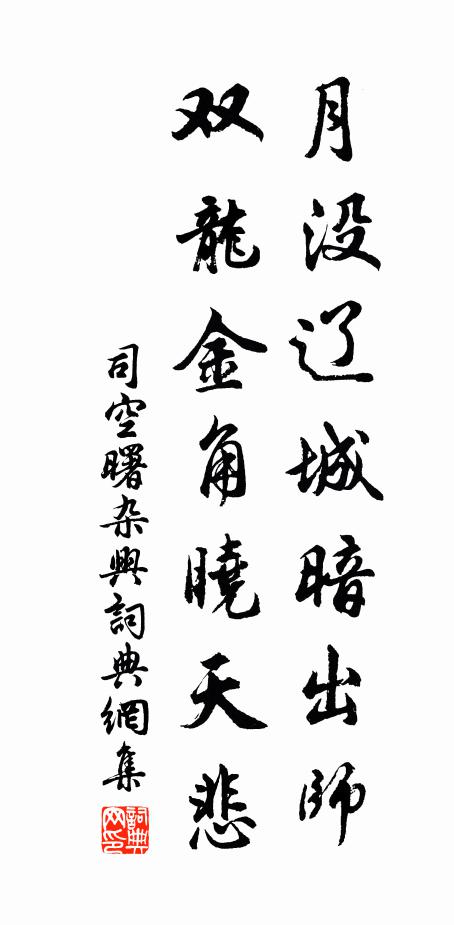 月没辽城暗出师
双龍金角曉天悲
司空曙杂興詞典網集
詞典网印